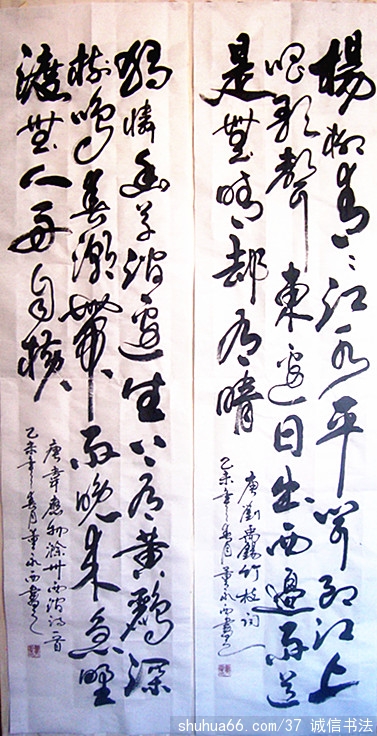 楊柳青々江水平聞郎江上
唱歌聲東邊日出西邊雨道
是無晴却有晴
唐劉禹錫竹枝詞
乙未年春月董永西書
獨憐幽草澗邊生上有黃鸝深
樹鳴春潮帶雨晚來急野
渡無人舟自橫
唐韋應物滁州西澗詩一首
乙未年春月董永西書
shuhua66.com/37 诚信书法